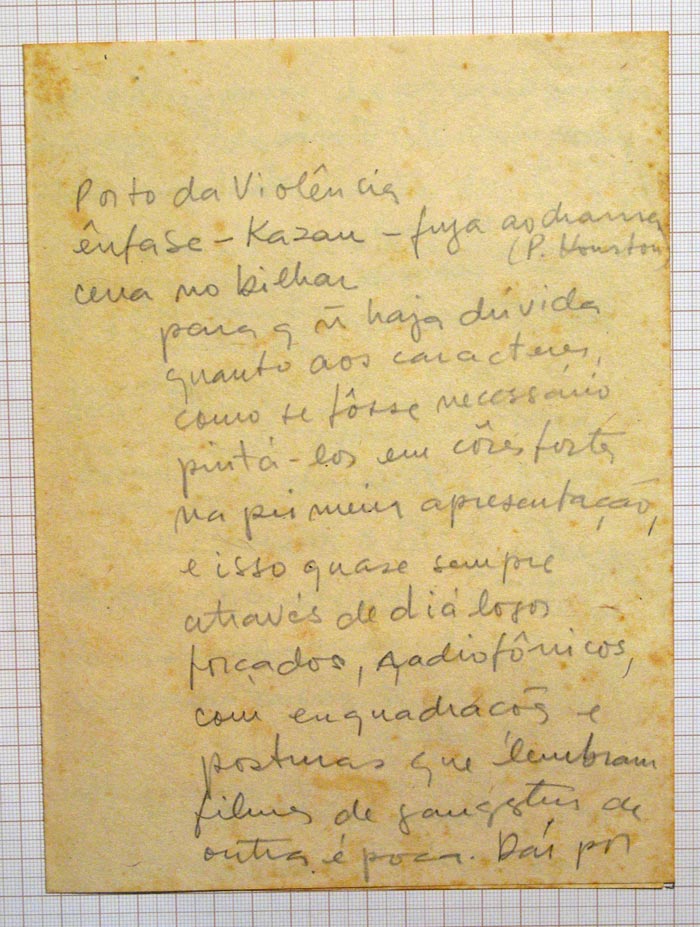 Porto da Violência
ênfase - Kazan - fuga ao drama
(P. Houston)
cena no bilhar
para q ñ haja dúvida
quanto aos caracteres,
como se fôsse necessário
pintá-los em côres fortes
na primeira apresentação,
e isso quase sempre
através de diálogos
forçados, radiofônicos,
com enquadracões e
posturas que lembram
filmes de gangsters de
outra época. Daí por